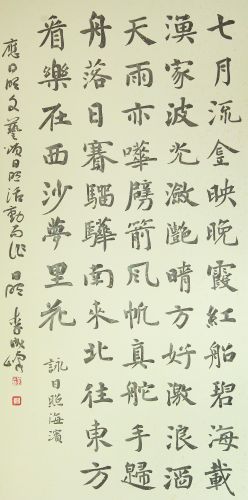 七月流金映晚霞紅船碧海載
漁家波光瀲灧晴方好激浪滔
天雨亦嘩劈箭風帆真舵手歸
舟落日賽騮驊南來北往東方
看樂在西沙夢里花
詠日照海濱
應日照文藝頌日照活動而作 日照 李